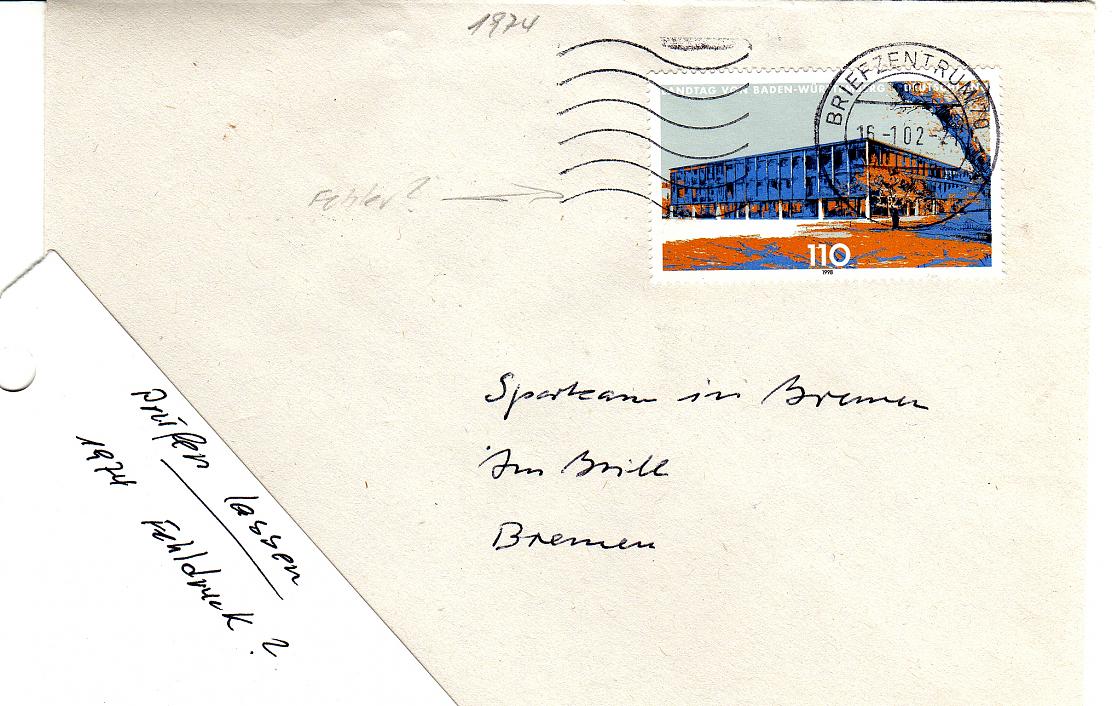 1974
LANDTAG VON BADEN-WÜRTTEMBERG DEUTSCHLAND
BRIEFZENTRUM
16-1.02-2
110
1998
Fehler?
Sparkasse in Bremen
Am Brill
Bremen
Prüfen lassen
1974 Fehldruck?